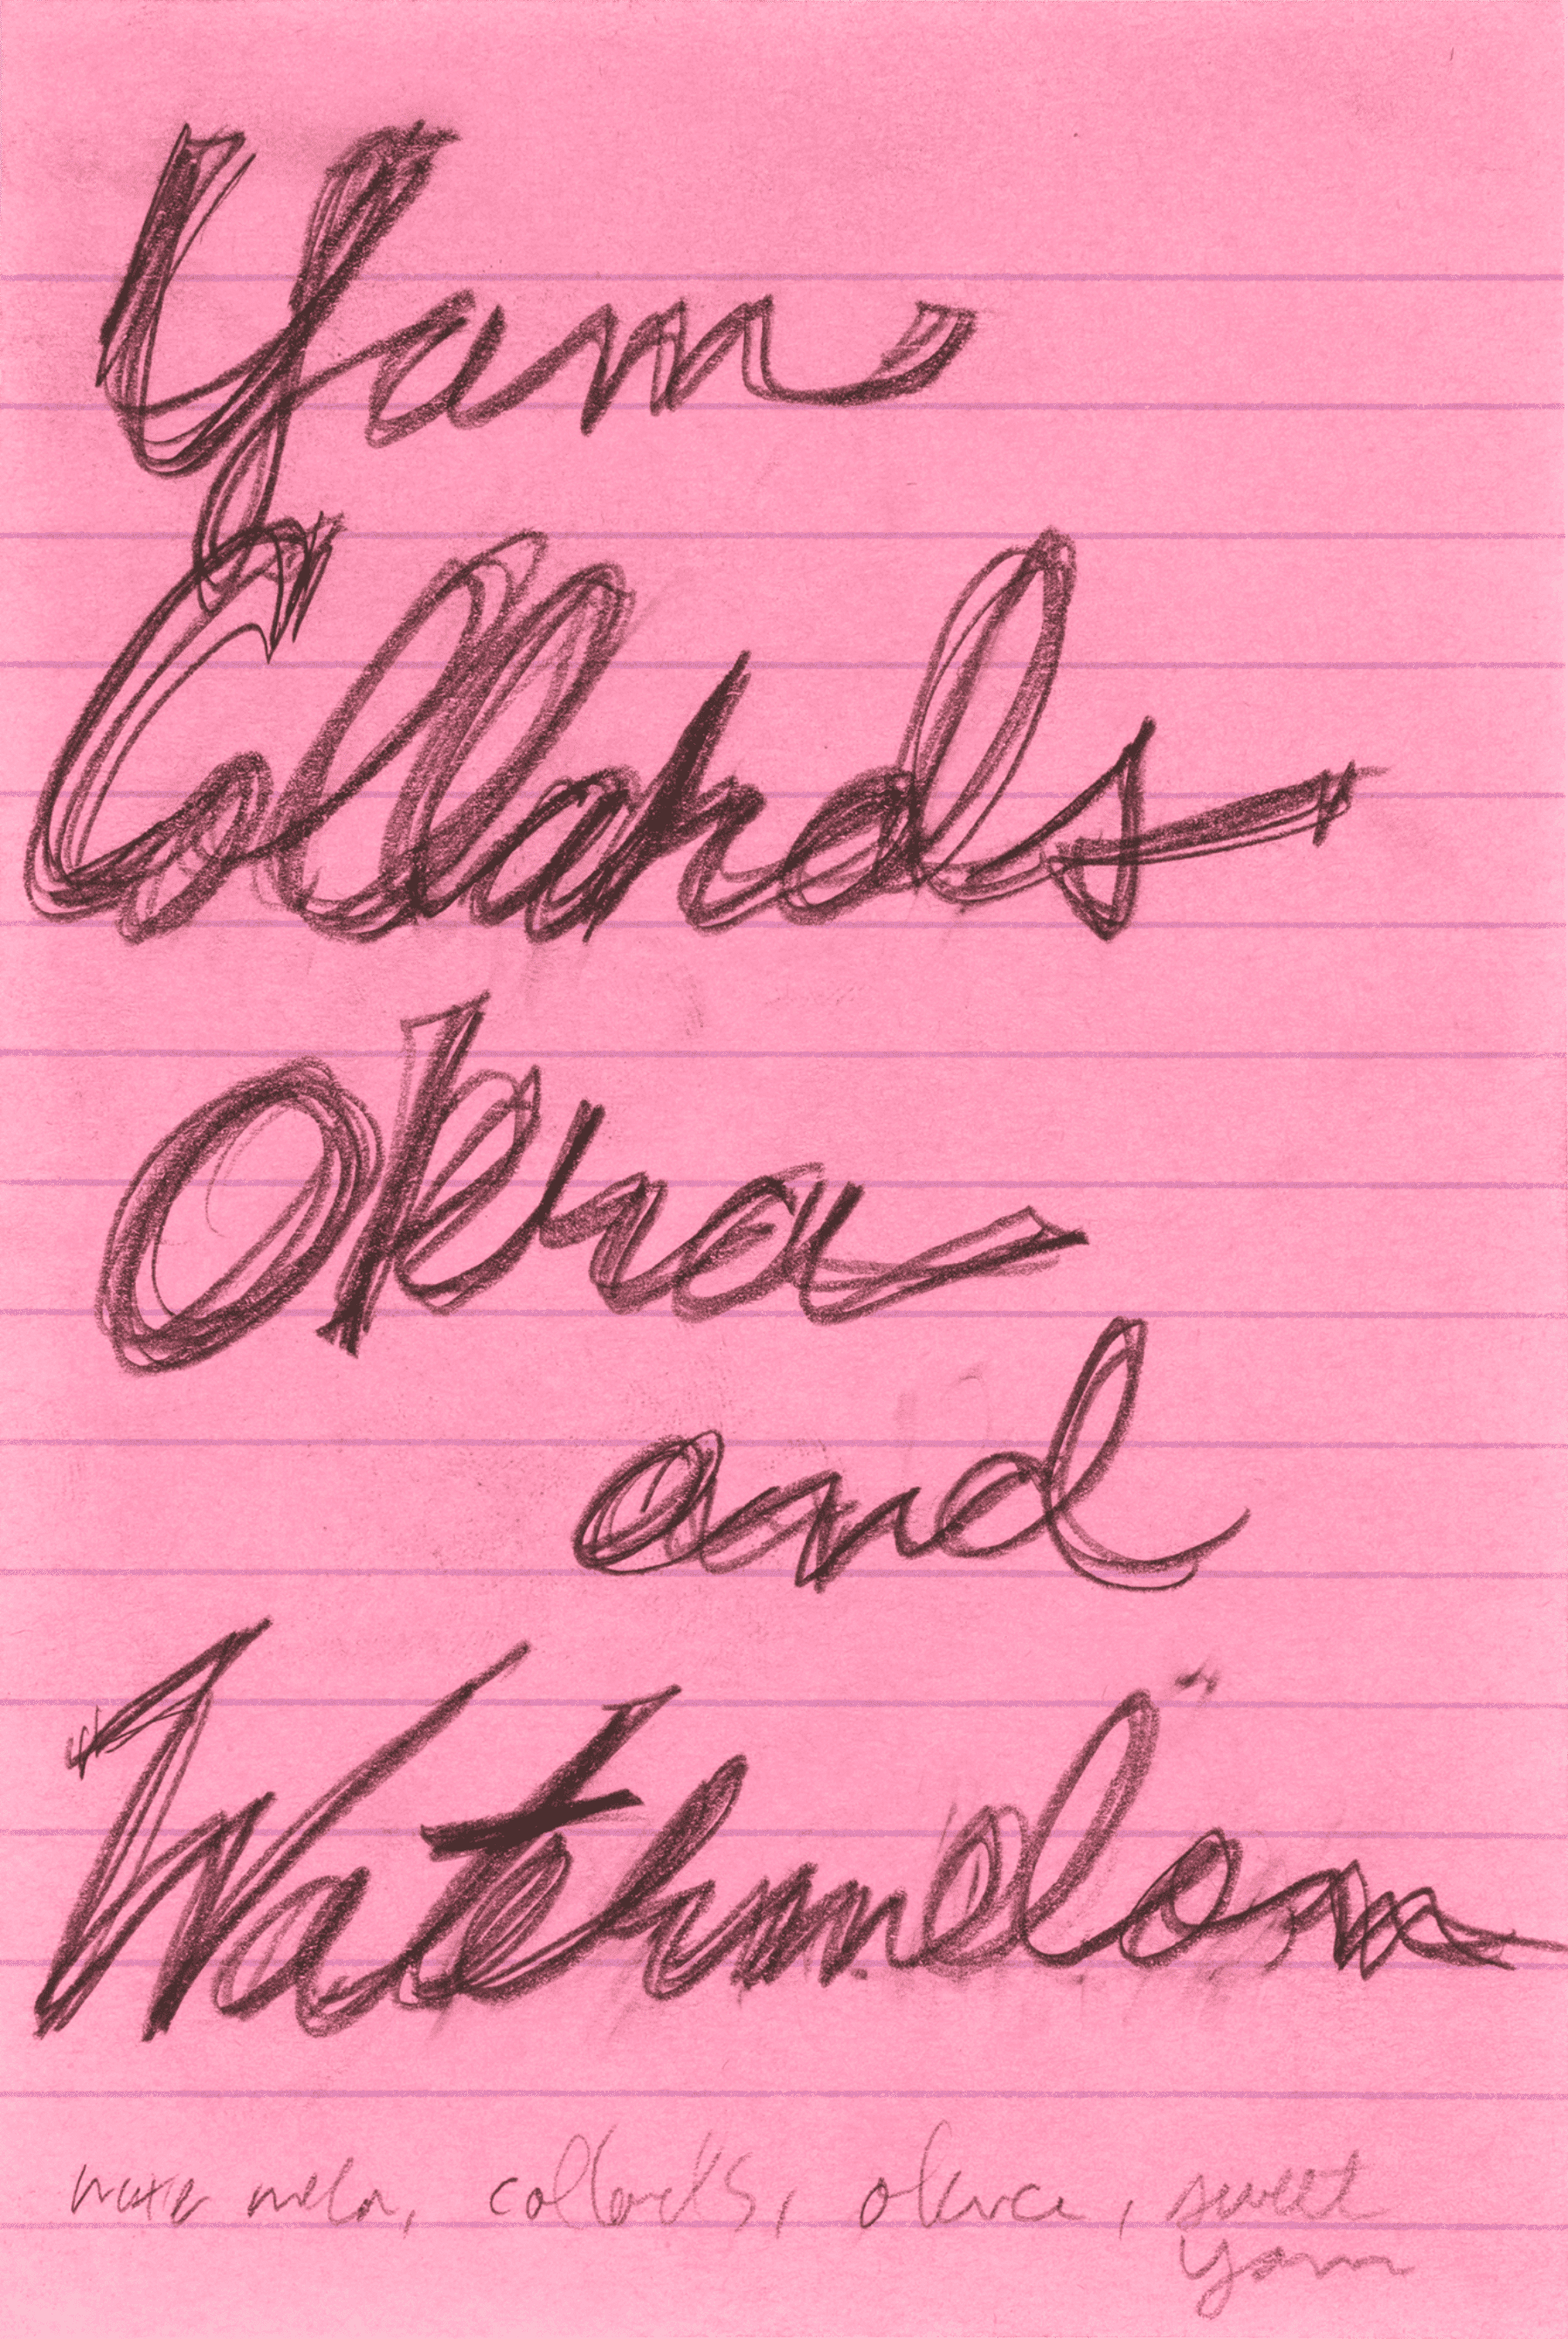 Yam
Collards
Okra
and
Watermelon
water melon, collards, okra, sweet
yam